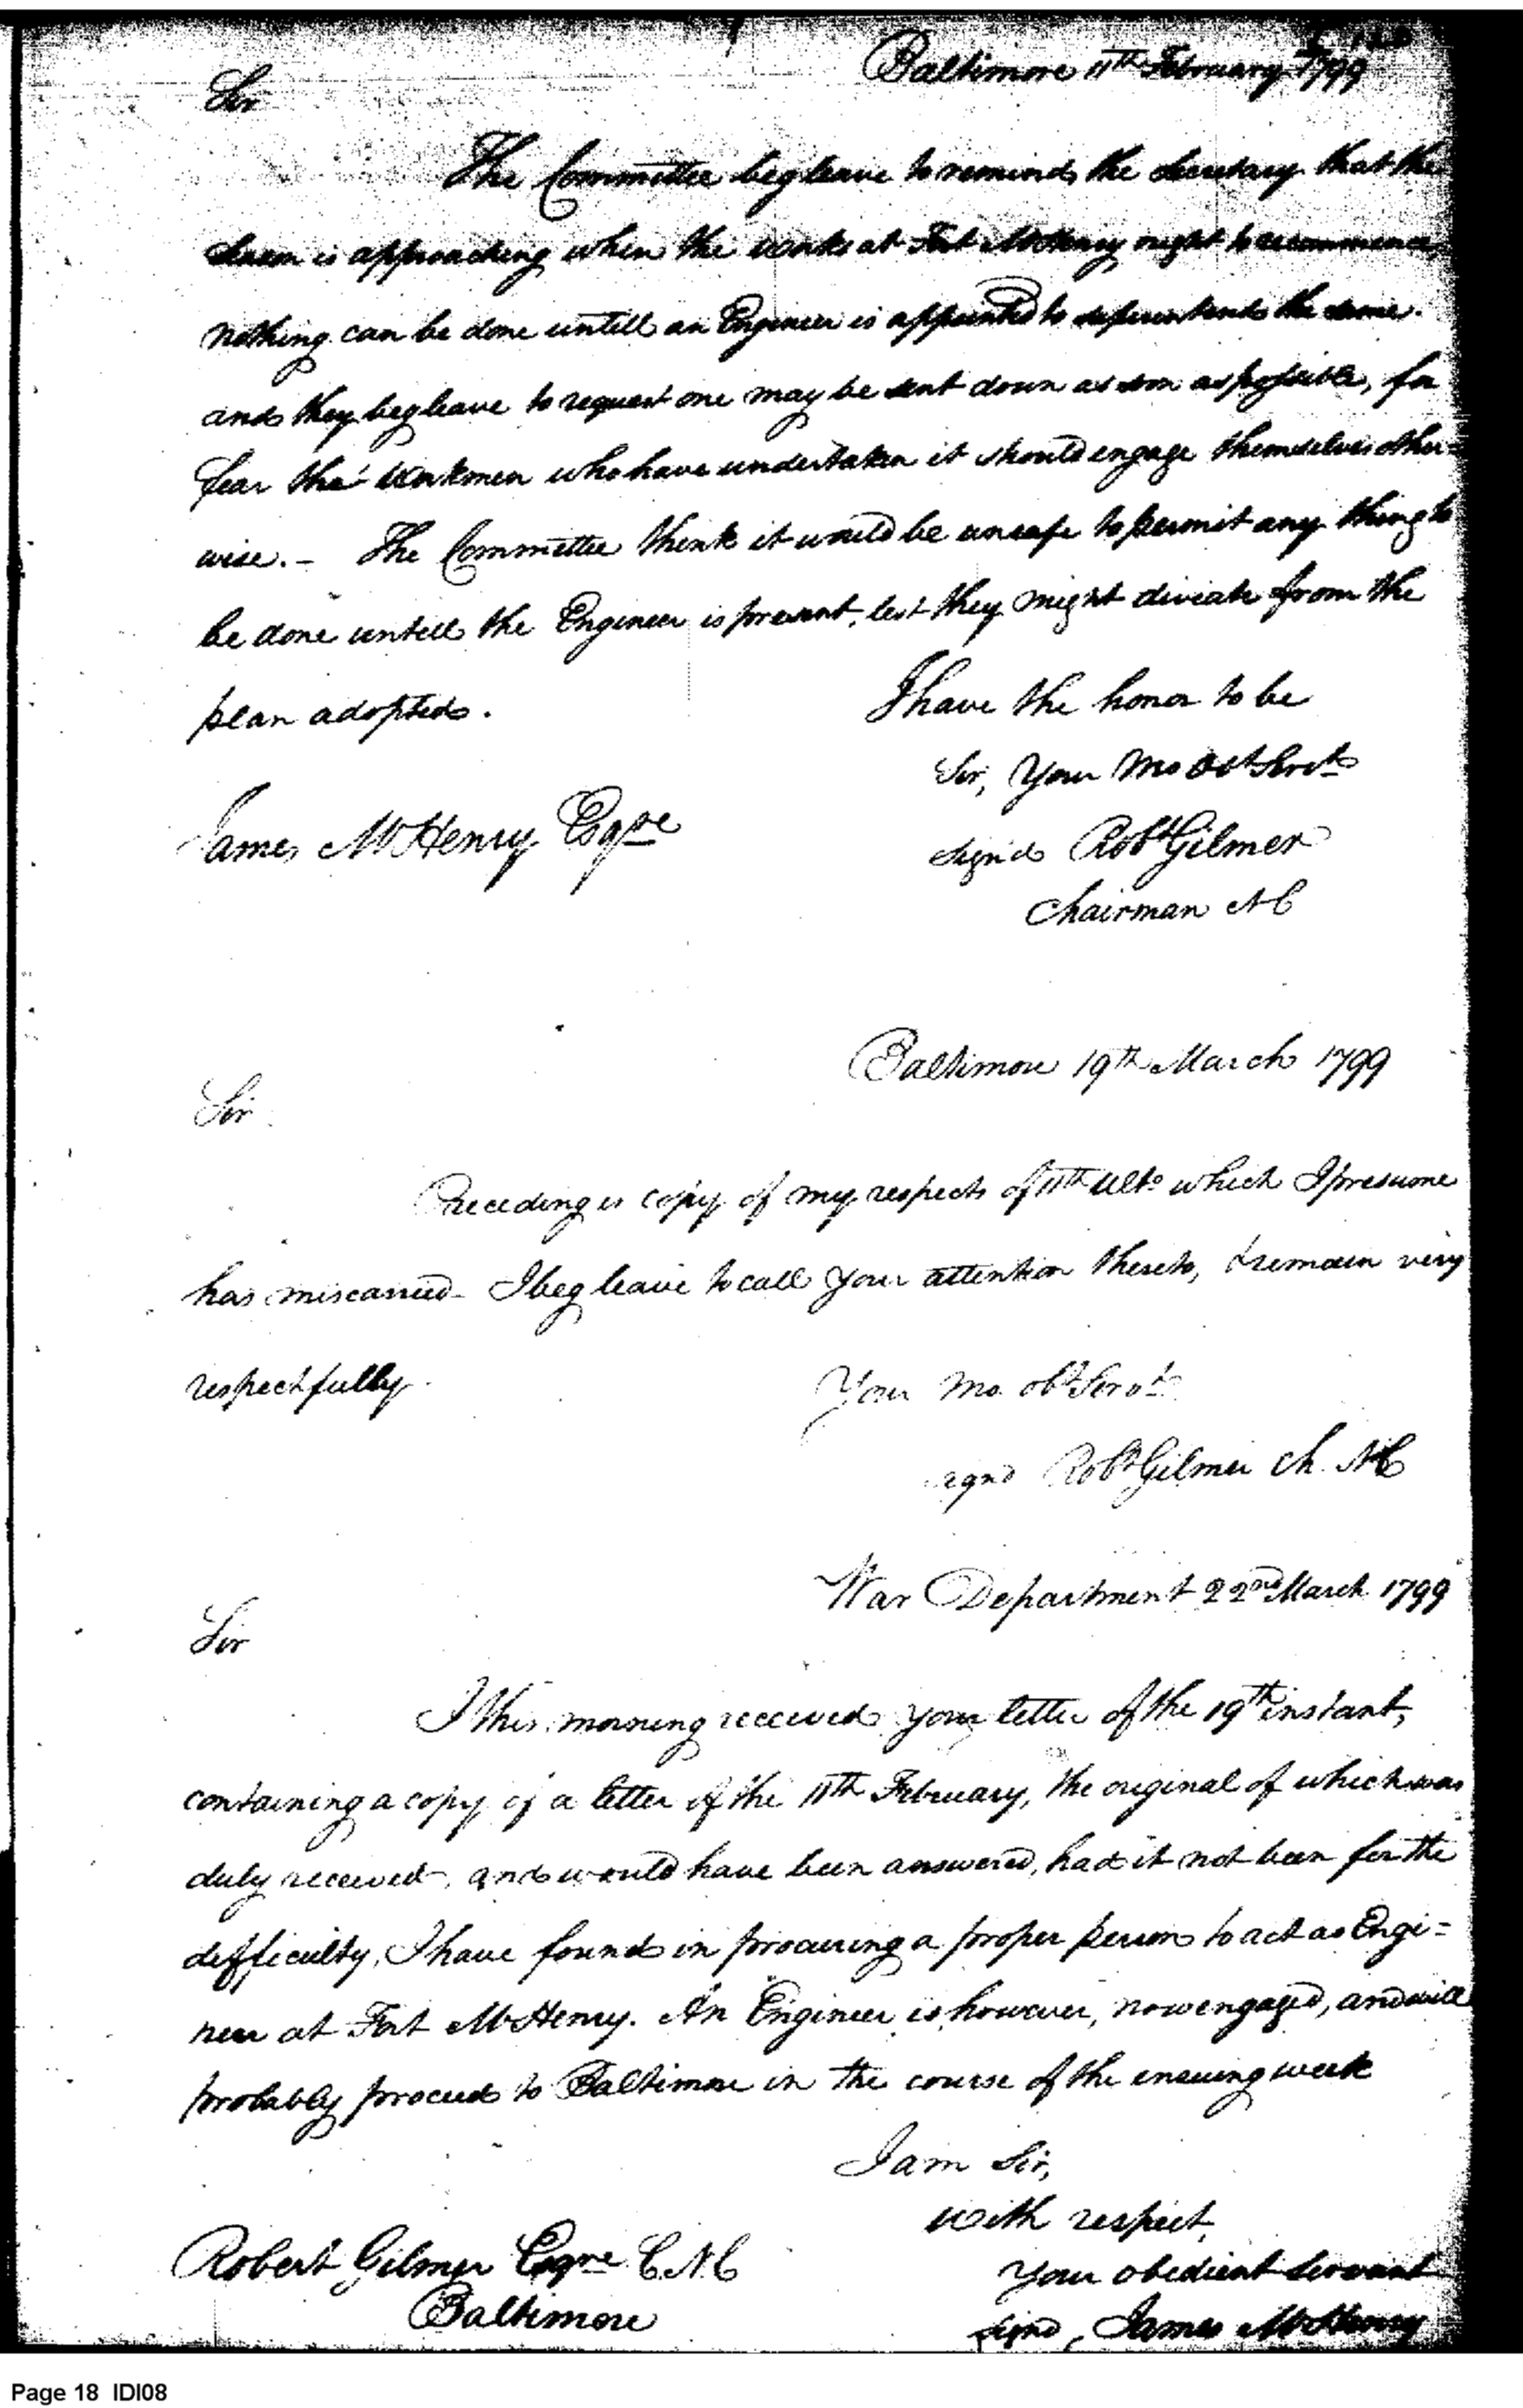 Baltimore 11th February 1799
Sir
The Committee beg leave to remind the Secretary that the
Season is approaching when the works at Fort McHenry ought to recommence,
nothing can be done untill an Engineer is appointed to superintend the same.
and they beg leave to request one may be sent down as soon as possible, for
fear the Workmen who have undertaken it should engage themselves other=
wise. – The Committee think it would be unsafe to permit any thing to
be done untill the Engineer is present, lest they might diviate from the
plan adopted.
I have the honor to be
Sir, Your Mo Obt Servts
James McHenry Esqre
signed Robt Gilmer
Chairman NC
Baltimore 19th March 1799
Sir
Preceding is copy of my respects of 11th Ulto which I presume
has miscarried – I beg leave to call your attention thereto, & remain very
respectfully
Your mo. obt Servt
signd Robt Gilmer Ch. NC
War Department 22nd March 1799
Sir
I this morning received your letter of the 19th instant,
containing a copy of a letter of the 11th February, the original of which was
duly received, and would have been answered, had it not been for the
difficulty, I have found in procuring a proper person to act as Engi=
neer at Fort McHenry. An Engineer is, however, now engaged, and will
probably proceed to Baltimore in the course of the ensuing week
I am Sir,
with respect,
Robert Gilmer Esqre C.N.C
Your obedient Servant
Baltimore
signd, James McHenry
Page 18 IDI08